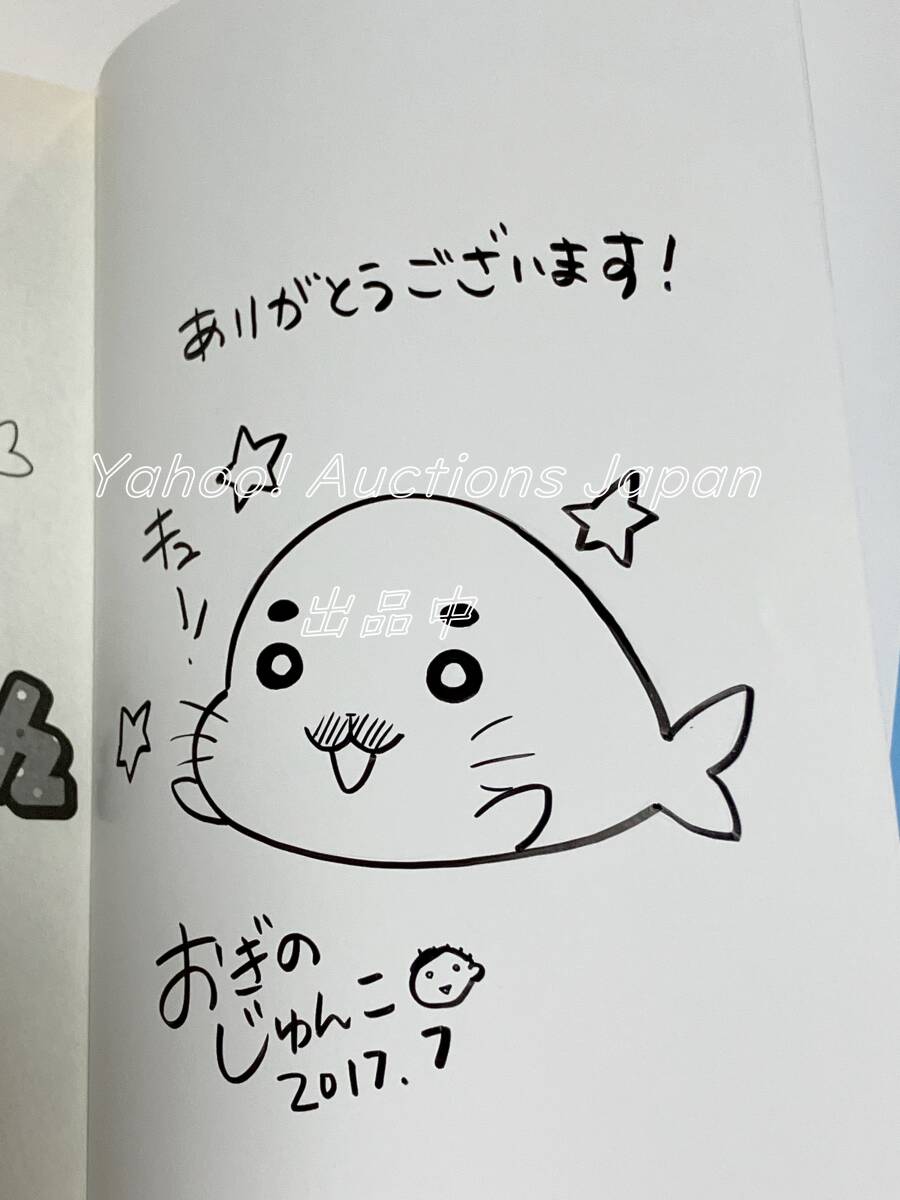 ありがとうございます!
Yahoo! Auctions Japan
キュー!
出品中
おぎの
じゅんこ
2017.7